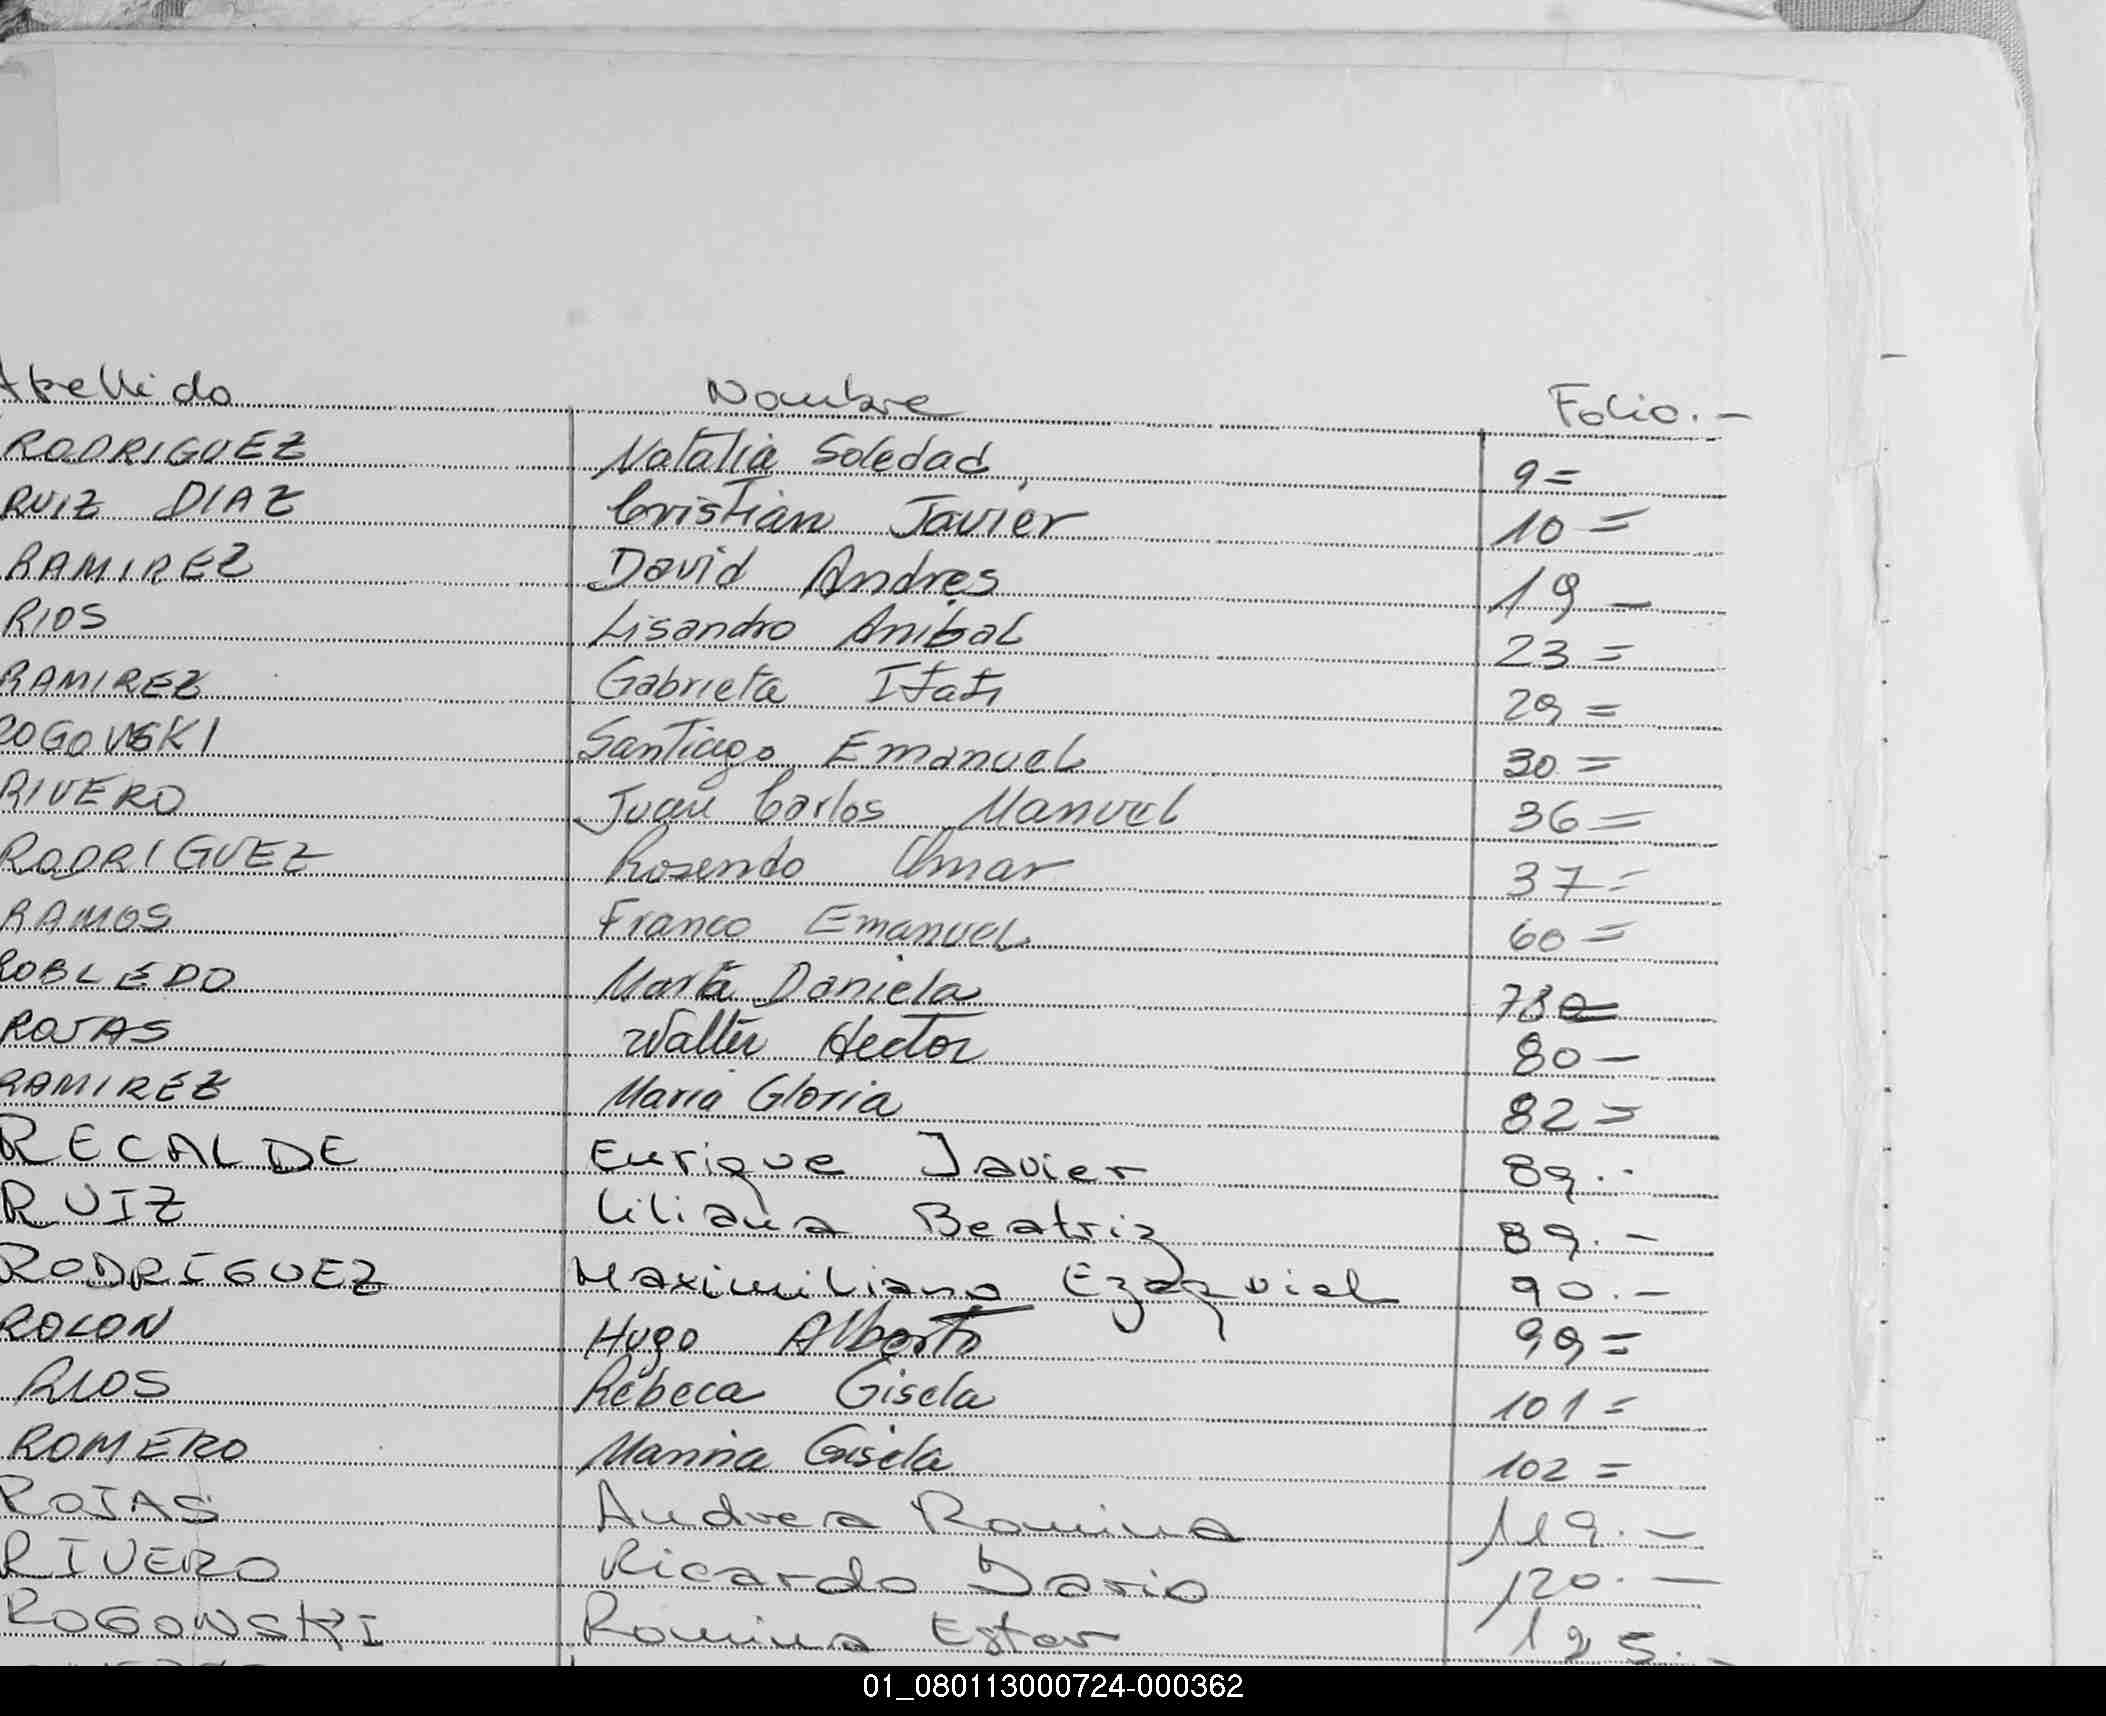 Apellido Nombre Folio.-
RODRIGUEZ Natalia Soledad 9=
RUIZ DIAZ Cristian Javier 10=
RAMIREZ David Andres 19-
RIOS Lisandro Anibal 23=
RAMIREZ Gabriela Itati 29=
ROGOVSKI Santiago Emanuel 30=
RIVERO Juan Carlos Manuel 36=
RODRIGUEZ Rosendo Omar 37=
RAMOS Franco Emanuel 60=
ROBLEDO Maria Daniela
ROJAS Walter Hector 80-
RAMIREZ Maria Gloria 82=
RECALDE Enrique Javier 89.-
RUIZ Liliana Beatriz 89.-
RODRÍGUEZ Maximiliano Ezequiel 90.-
ROLON Hugo Alberto 99=
RIOS Rebeca Gisela 101=
ROMERO Marina Gisela 102=
ROJAS Andrea Romina 119.-
RIVERO Ricardo Dario 120.-
ROGOWSKI Romina Ester 125.-
01_080113000724-000362